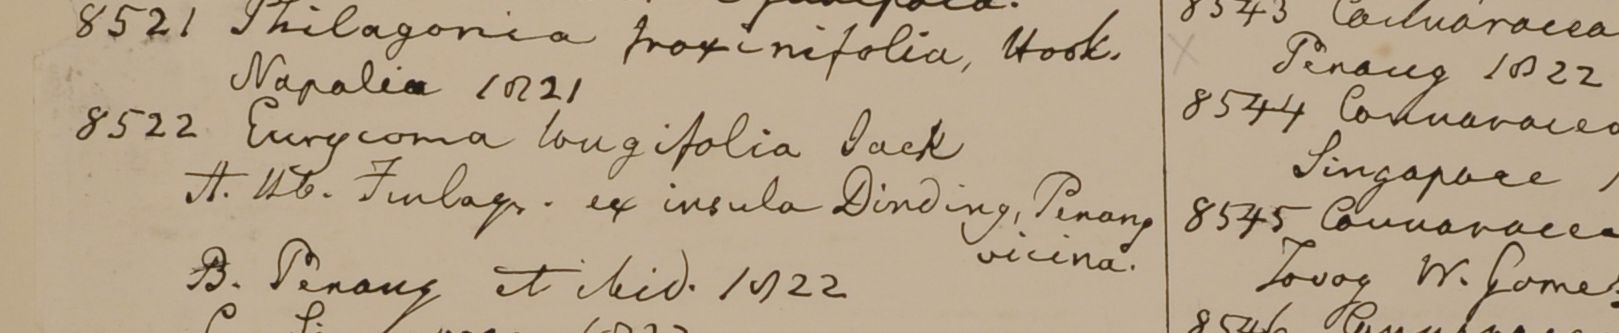 8521 Philagonia fraxinifolia, Hook.
Napalia 1821
8522 Eurycoma longifolia Jack
A. Hb. Finlays. ex insula Dinding, Penang
vicina.
B. Penang et ibid. 1822
8543 Connaracea
Penang 1822
8544 Connaracea
Singapore
8545 Connaracea
Tavoy W. Gomez
8546